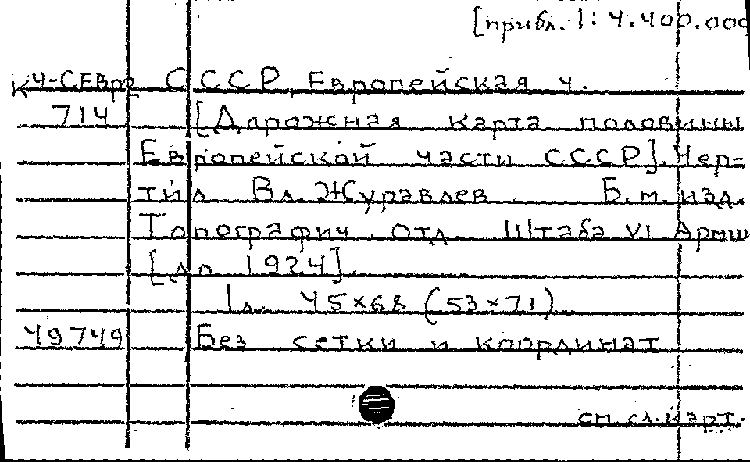 [прибл. 1: 4.400.000
К4-СЕвро С С С Р, Европейская ч.
714 [Дорожная карта половины
Европейской части СССР]. Чер-
тил Вл. Журавлев. Б.м. изд.
Топографич. отд. Штаба VI Армии
[до 1924].
1 л. 45×68 (53×71).
49749 Без сетки и координат
см. сл. карт.